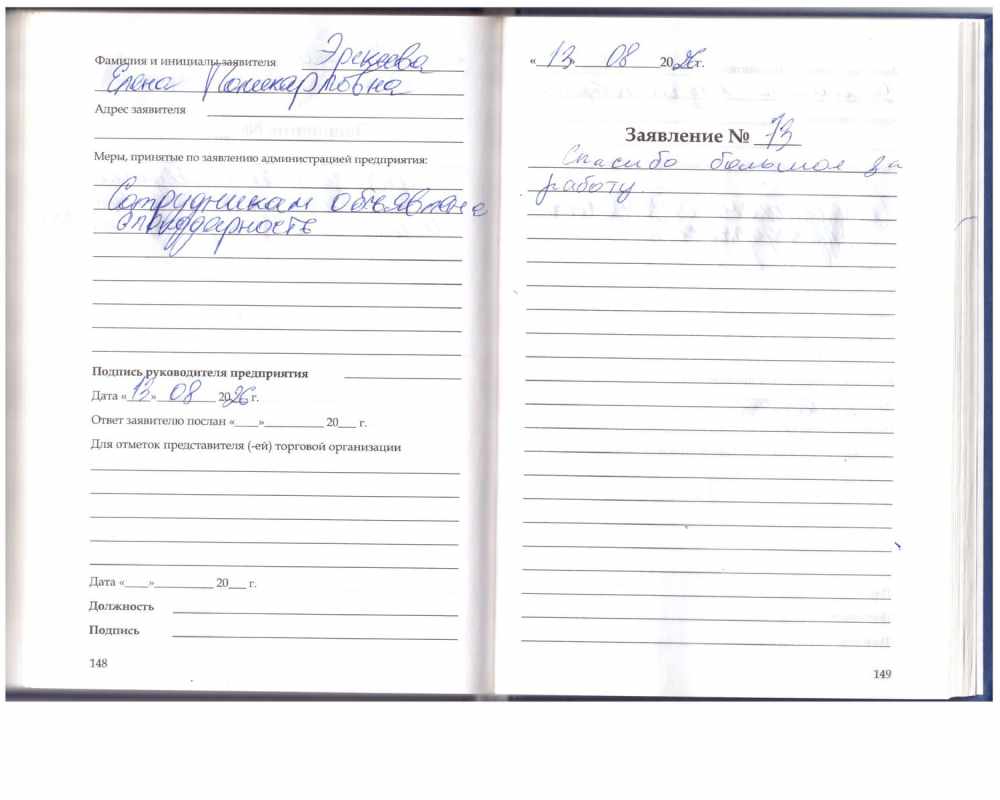 Фамилия и инициалы заявителя
Елена Поликарповна
Адрес заявителя
Меры, принятые по заявлению администрацией предприятия:
Сотрудникам объявлена
благодарность
Подпись руководителя предприятия
Дата «13» 08 2026 г.
Ответ заявителю послан «____»__________ 20___ г.
Для отметок представителя (-ей) торговой организации
Дата «____»__________ 20___ г.
Должность
Подпись
148
«13» 08 2026 г.
Заявление № 73
Спасибо большое за
работу.
149